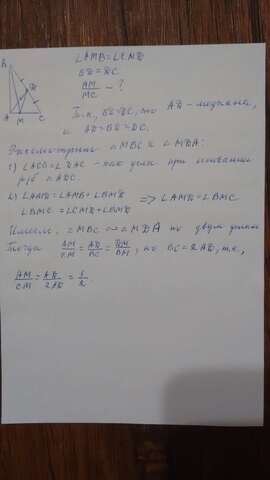 B
D
A M C
∠AMB=∠CMD
BD=DC
AM/MC - ?
Т.к. BD=DC, то AD-медиана,
и AD=BD=DC.
Рассмотрим △MBC и △MDA:
1) ∠ACB=∠DAC - как углы при основании
р/б △ADC.
2) ∠AMD=∠AMB+∠BMD => ∠AMD=∠BMC
∠BMC=∠CMD+∠BMD
Имеем: △MBC ~ △MDA по двум углам
Тогда AM/CM=AD/BC=DM/BM, но BC=2AD, т.к.,
AM/CM=AD/2AD=1/2.